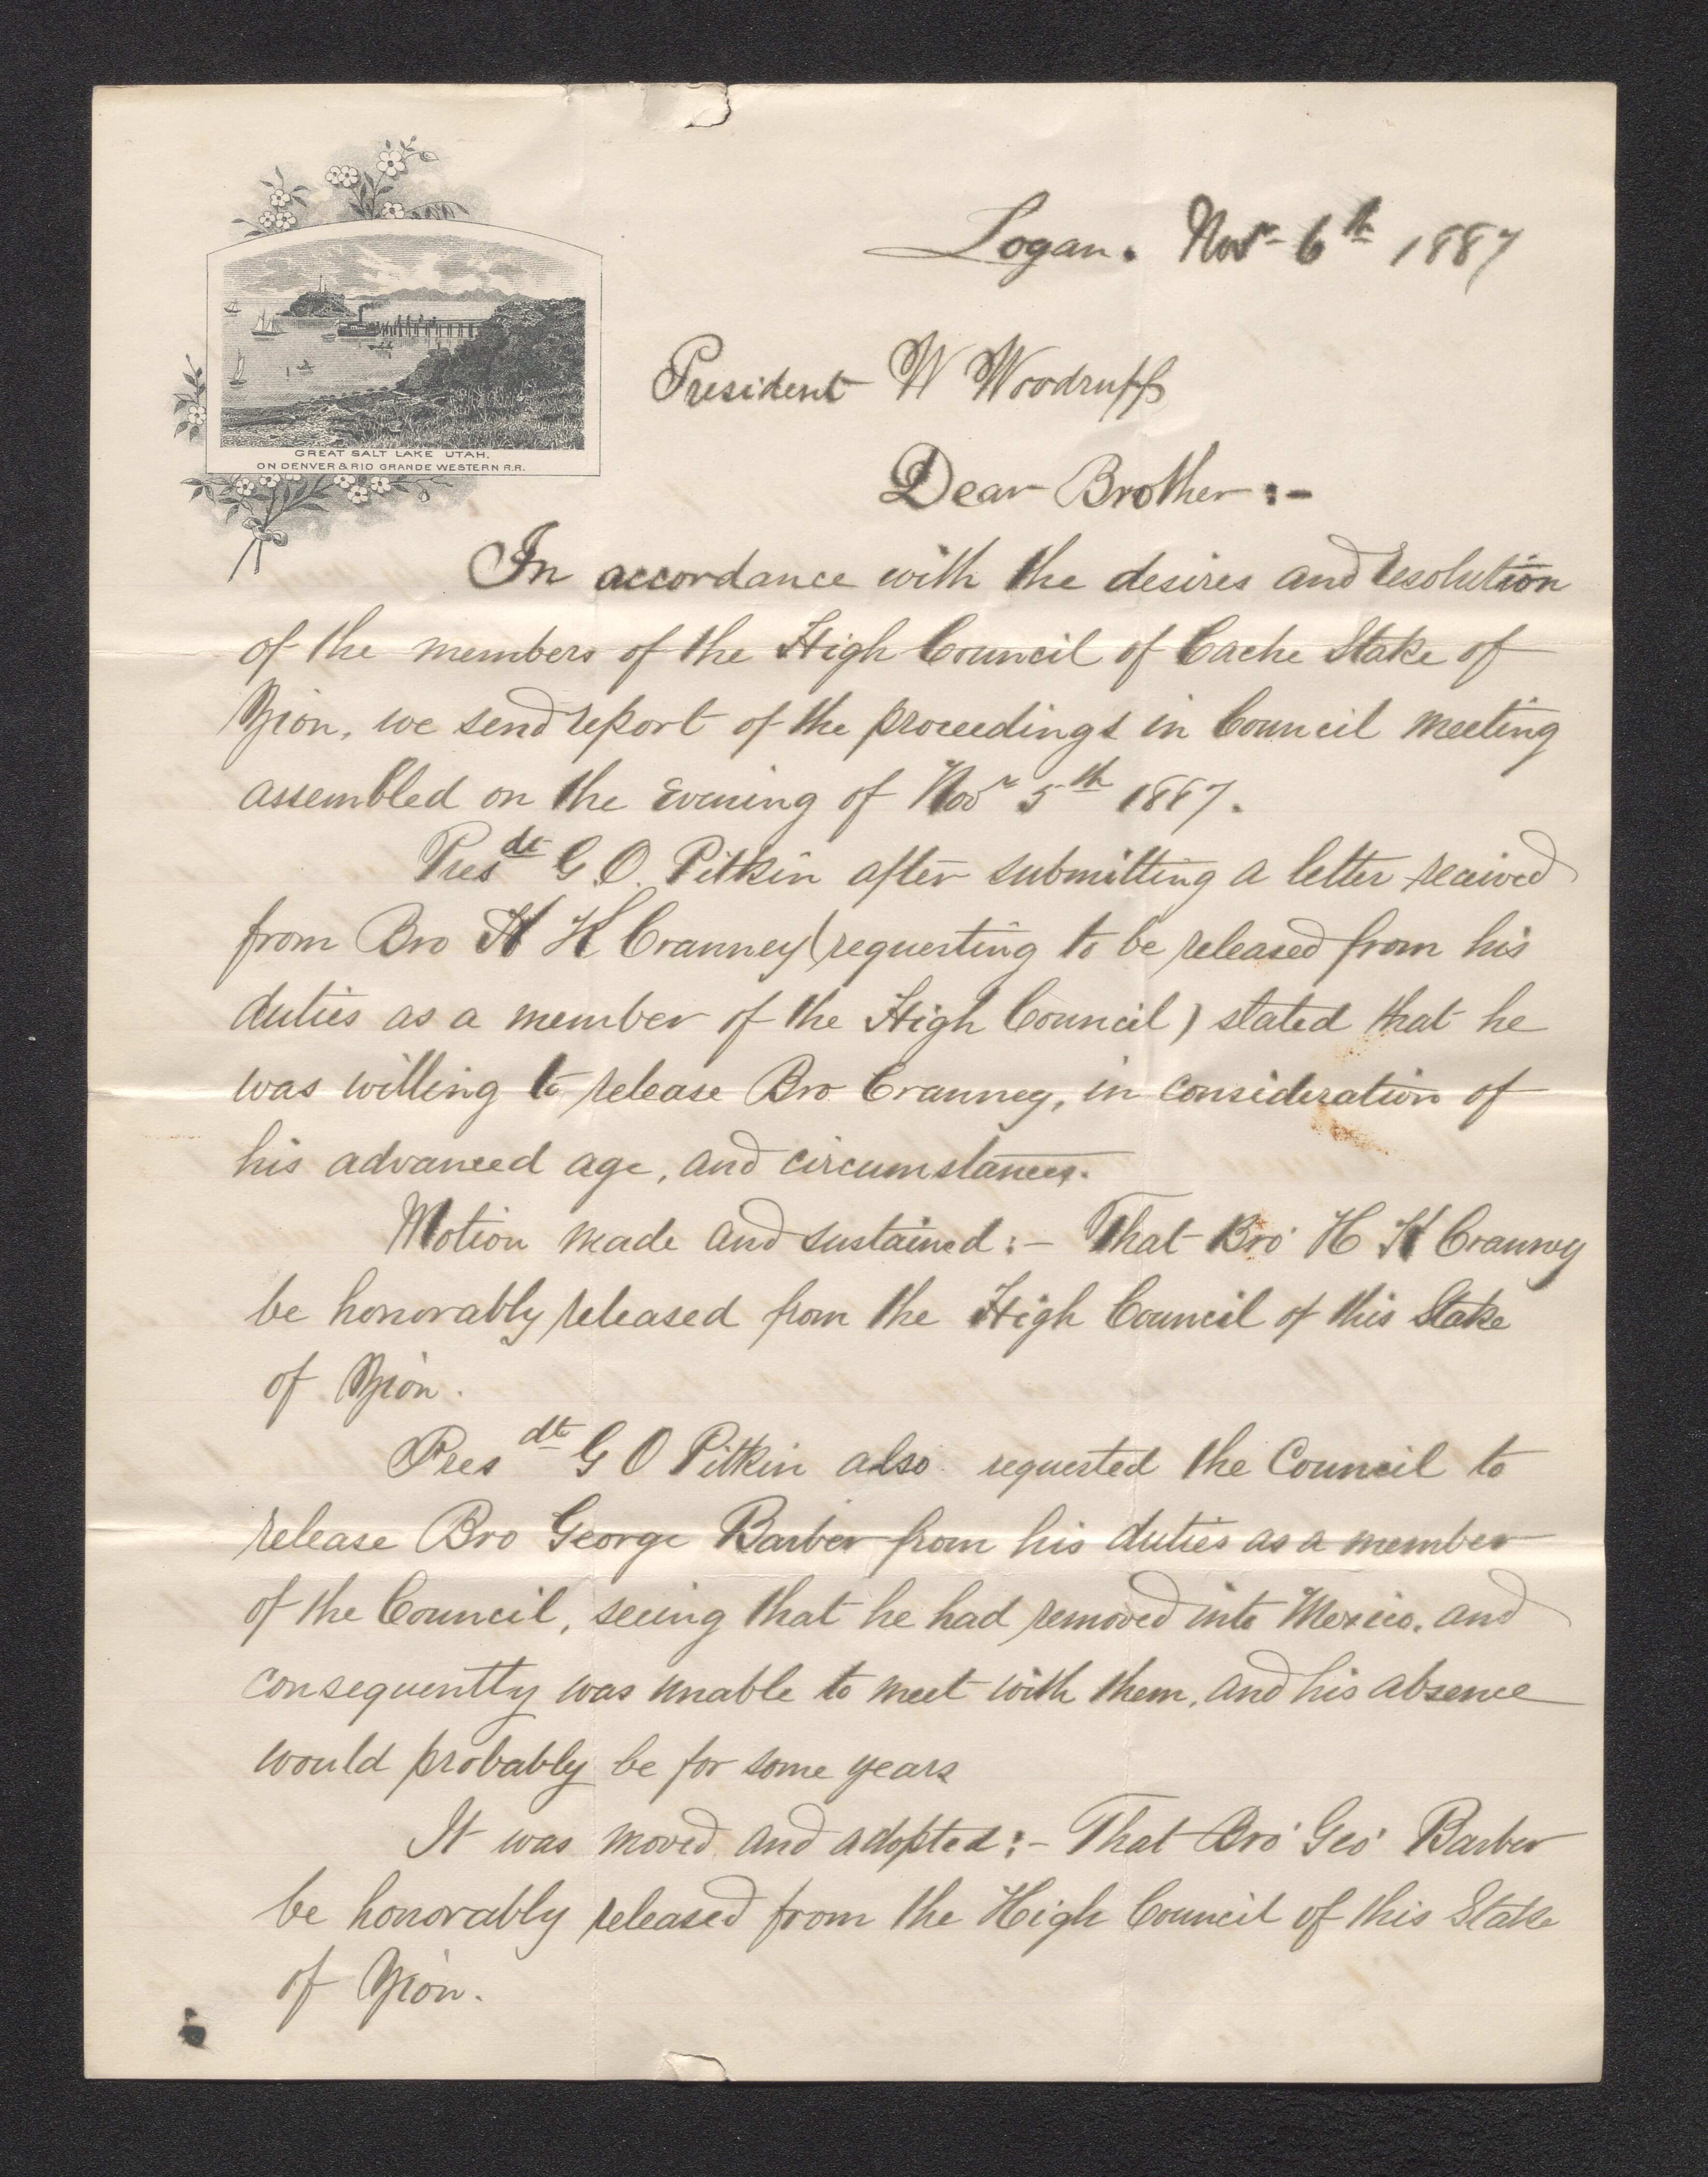 GREAT SALT LAKE UTAH.
ON DENVER & RIO GRANDE WESTERN R.R.
Logan. Novr 6th 1887
President W Woodruff
Dear Brother:-
In accordance with the desires and resolution
of the members of the High Council of Cache Stake of
Zion, we send report of the proceedings in Council meeting
assembled on the Evening of Novr 5th 1887.
Presdt G. O. Pitkin after submitting a letter received
from Bro H K Cranney (requesting to be released from his
duties as a member of the High Council) stated that he
was willing to release Bro Cranney, in consideration of
his advanced age, and circumstances.
Motion made and sustained:- That Bro H K Cranney
be honorably released from the High Council of this Stake
of Zion.
Presdt G O Pitkin also requested the Council to
release Bro George Barber from his duties as a member
of the Council, seeing that he had removed into Mexico, and
consequently was unable to meet with them, and his absence
would probably be for some years
It was moved and adopted:- That Bro Geo Barber
be honorably released from the High Council of this Stake
of Zion.